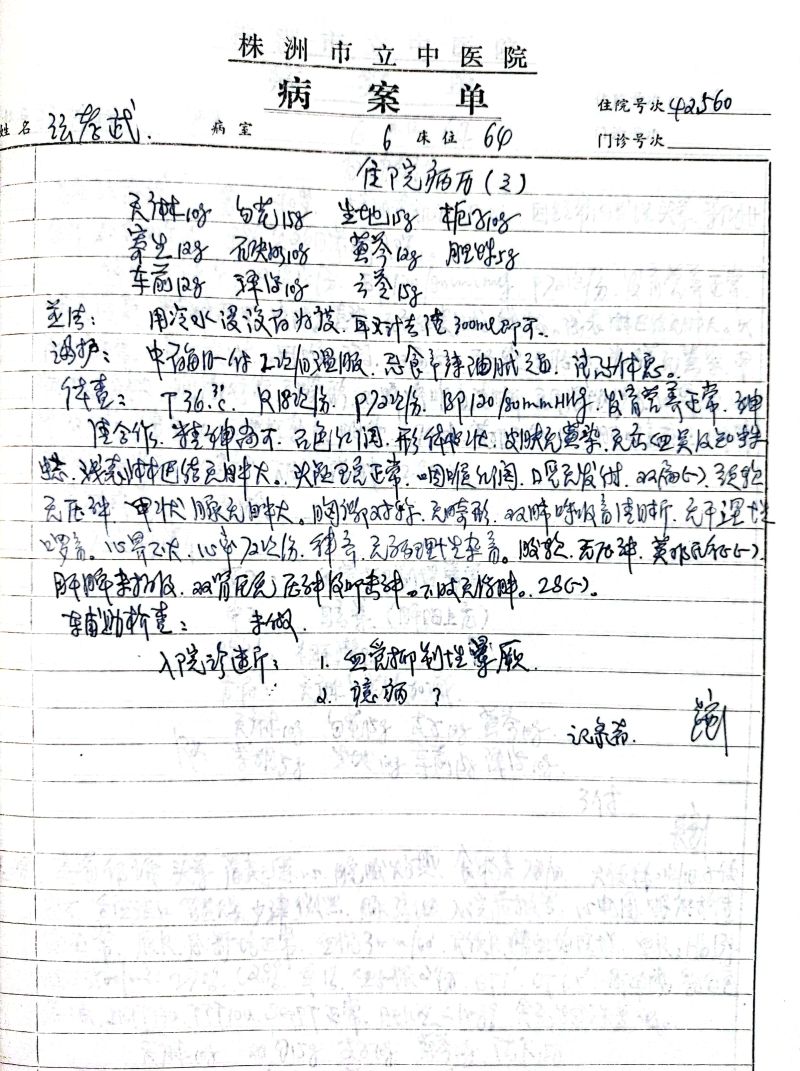 株洲市立中医院
病案单
住院号次 42560
姓名 病室 6 床位 64 门诊号次
住院病历(3)
天麻10g 勾芫15g 生地15g 栀子10g
寄生12g 石决明10g 黄芩12g 胆草5g
车前12g 泽泻10g 云苓15g
煎法: 用冷水浸没药为度 再文汁去渣 300ml即可
调护: 中药每日一付 二次分温服 忌食辛辣油腻之品
体查: T36.3℃ R18次/分 P72次/分 BP120/80mmHg 发育营养正常 神
清合作 精神尚可 面色红润 形体 皮肤无黄染 无出血
浅表淋巴结无肿大。头颅五官正常 咽喉 颈软
无压神 甲状腺无肿大。胸廓对称 无畸形 双肺呼吸音清晰 无干湿性
啰音。心界不大 心率72次/分 无病理性杂音。腹软 无压神 莫非氏征(-)
肝脾未扪及 双肾区无压神及叩击神。下肢无浮肿。
辅助检查: 未做
入院诊断: 1. 血管抑制性晕厥
2. 癔病?
记录者